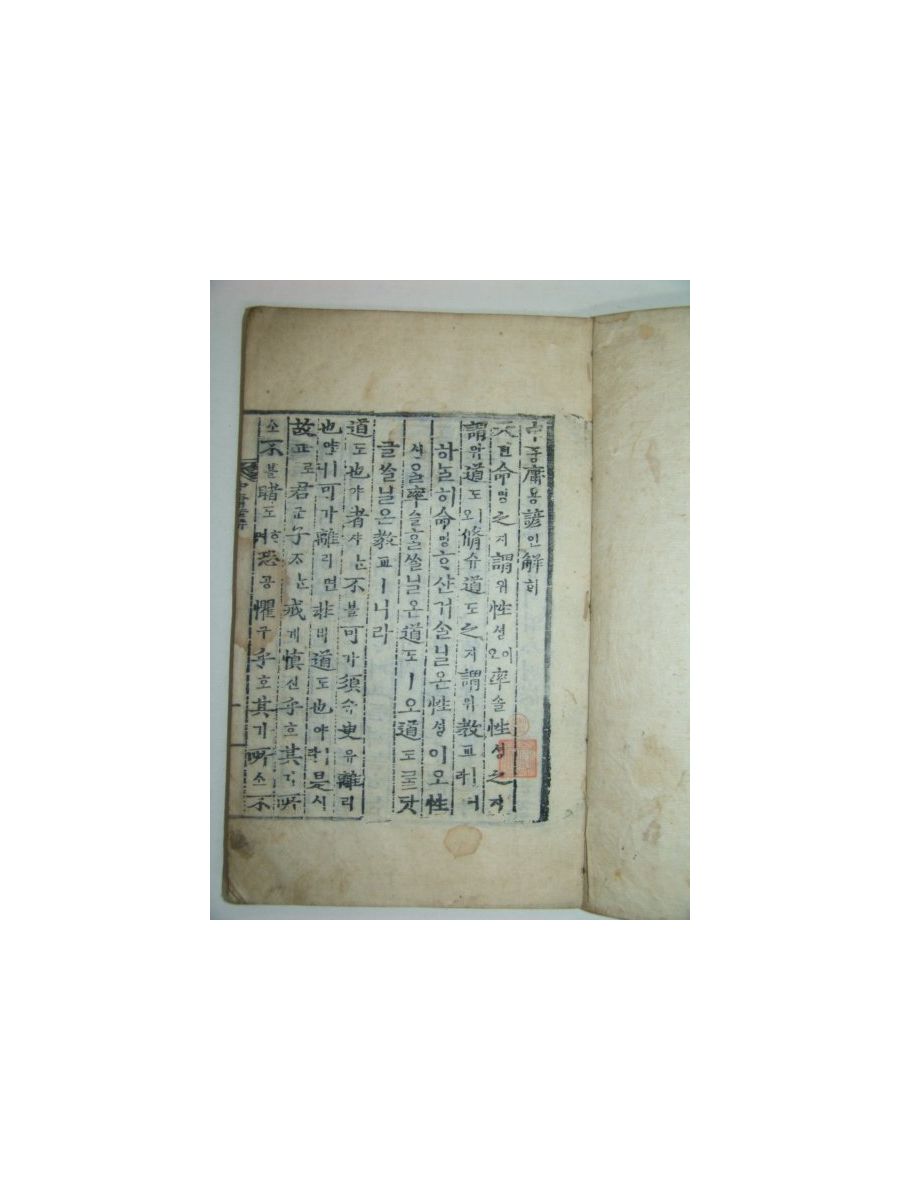 中듕庸용諺언解ᄒᆡ
天텬命명之지謂위性셩이오率솔性셩之지
謂위道도ㅣ오脩슈道도之지謂위敎교ㅣ니라
하ᄂᆞᆯ히命명ᄒᆞ샨거ᄉᆞᆯ닐온性셩이오性
셩을率솔홀ᄊᆞᆯ닐온道도ㅣ오道도ᄅᆞᆯ닷
글ᄊᆞᆯ닐온敎교ㅣ니라
道도也야者쟈ᄂᆞᆫ不블可가須슈臾유離리
也야ㅣ니可가離리면非비道도也야ㅣ라是시
故고로君군子ᄌᆞᄂᆞᆫ戒계愼신乎호其기所
소不블睹도ᄒᆞ며恐공懼구乎호其기所소不